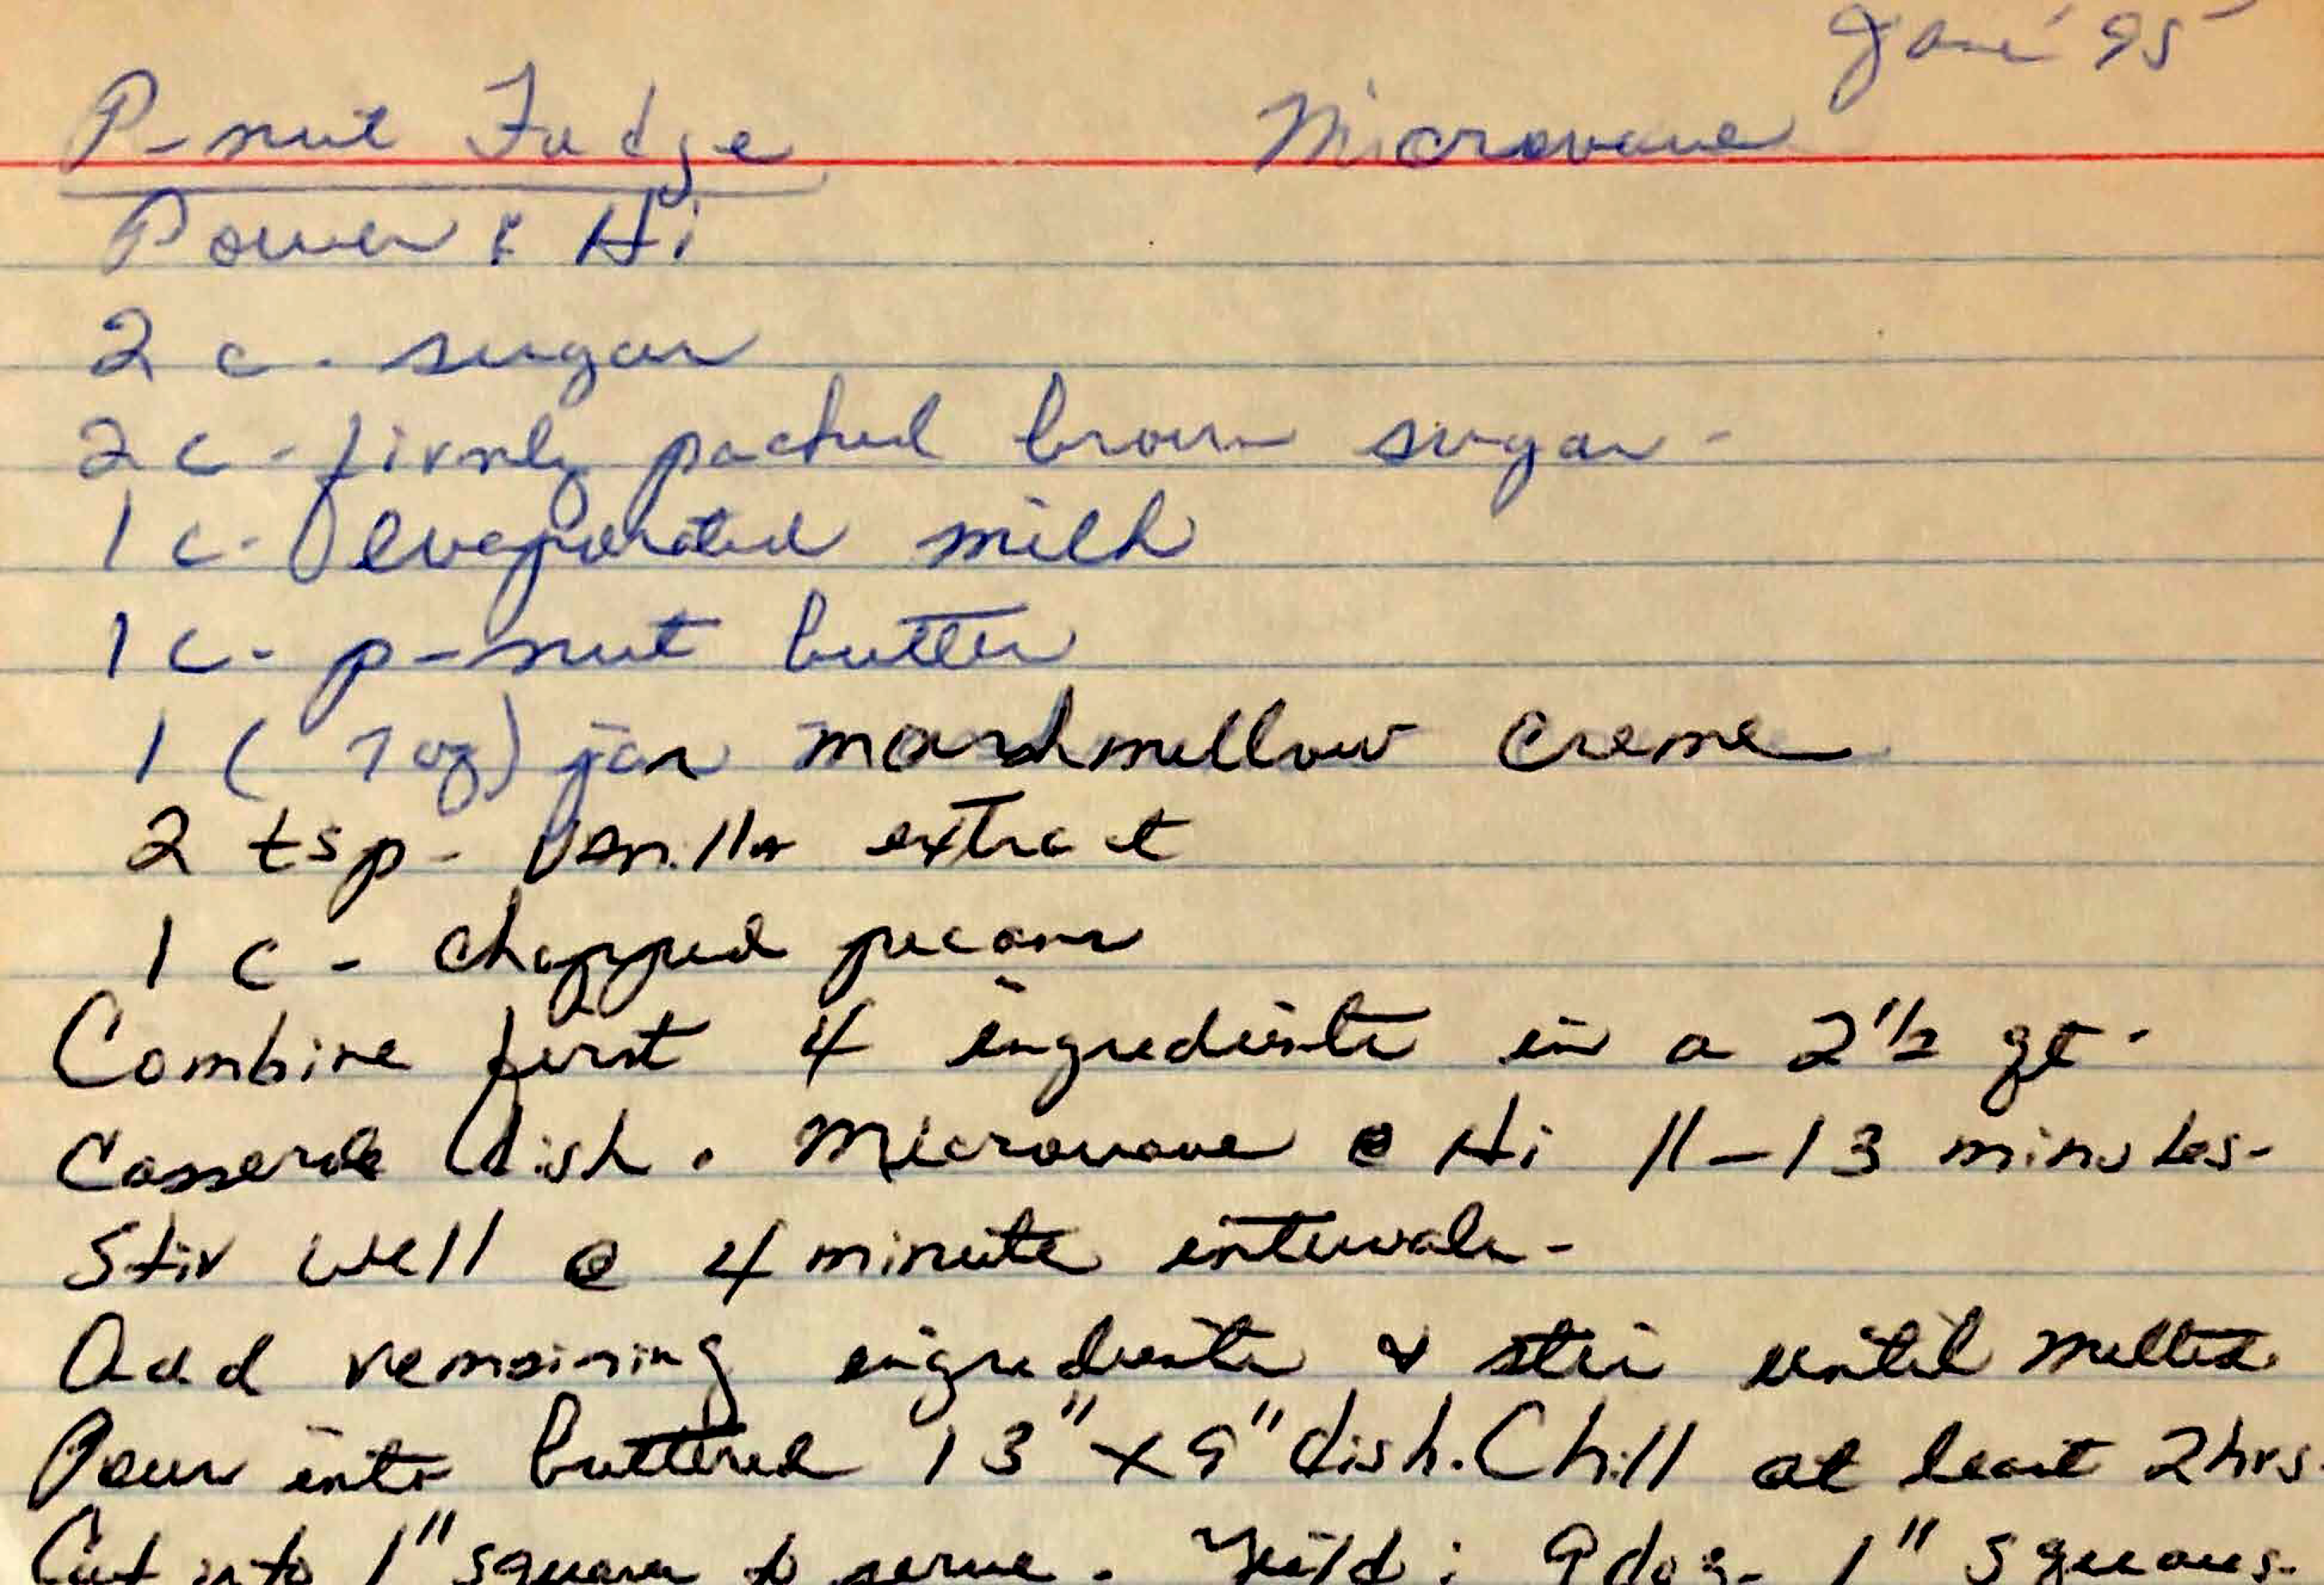 Jan '95
P-nut Fudge Microwave
Power: Hi
2 c. sugar
2 c - firmly packed brown sugar -
1 c - evaporated milk
1 c - p-nut butter
1 (7 oz) jar marshmellow creme
2 tsp - Vanilla extract
1 c - chopped pecans
Combine first 4 ingredients in a 2 1/2 qt.
Casserole dish. Microwave @ Hi 11-13 minutes-
Stir well @ 4 minute intervals-
Add remaining ingredients & stir until melted
Pour into buttered 13" x 9" dish. Chill at least 2 hrs.
Cut into 1" squares to serve. Yeild: 9 doz- 1" squares-